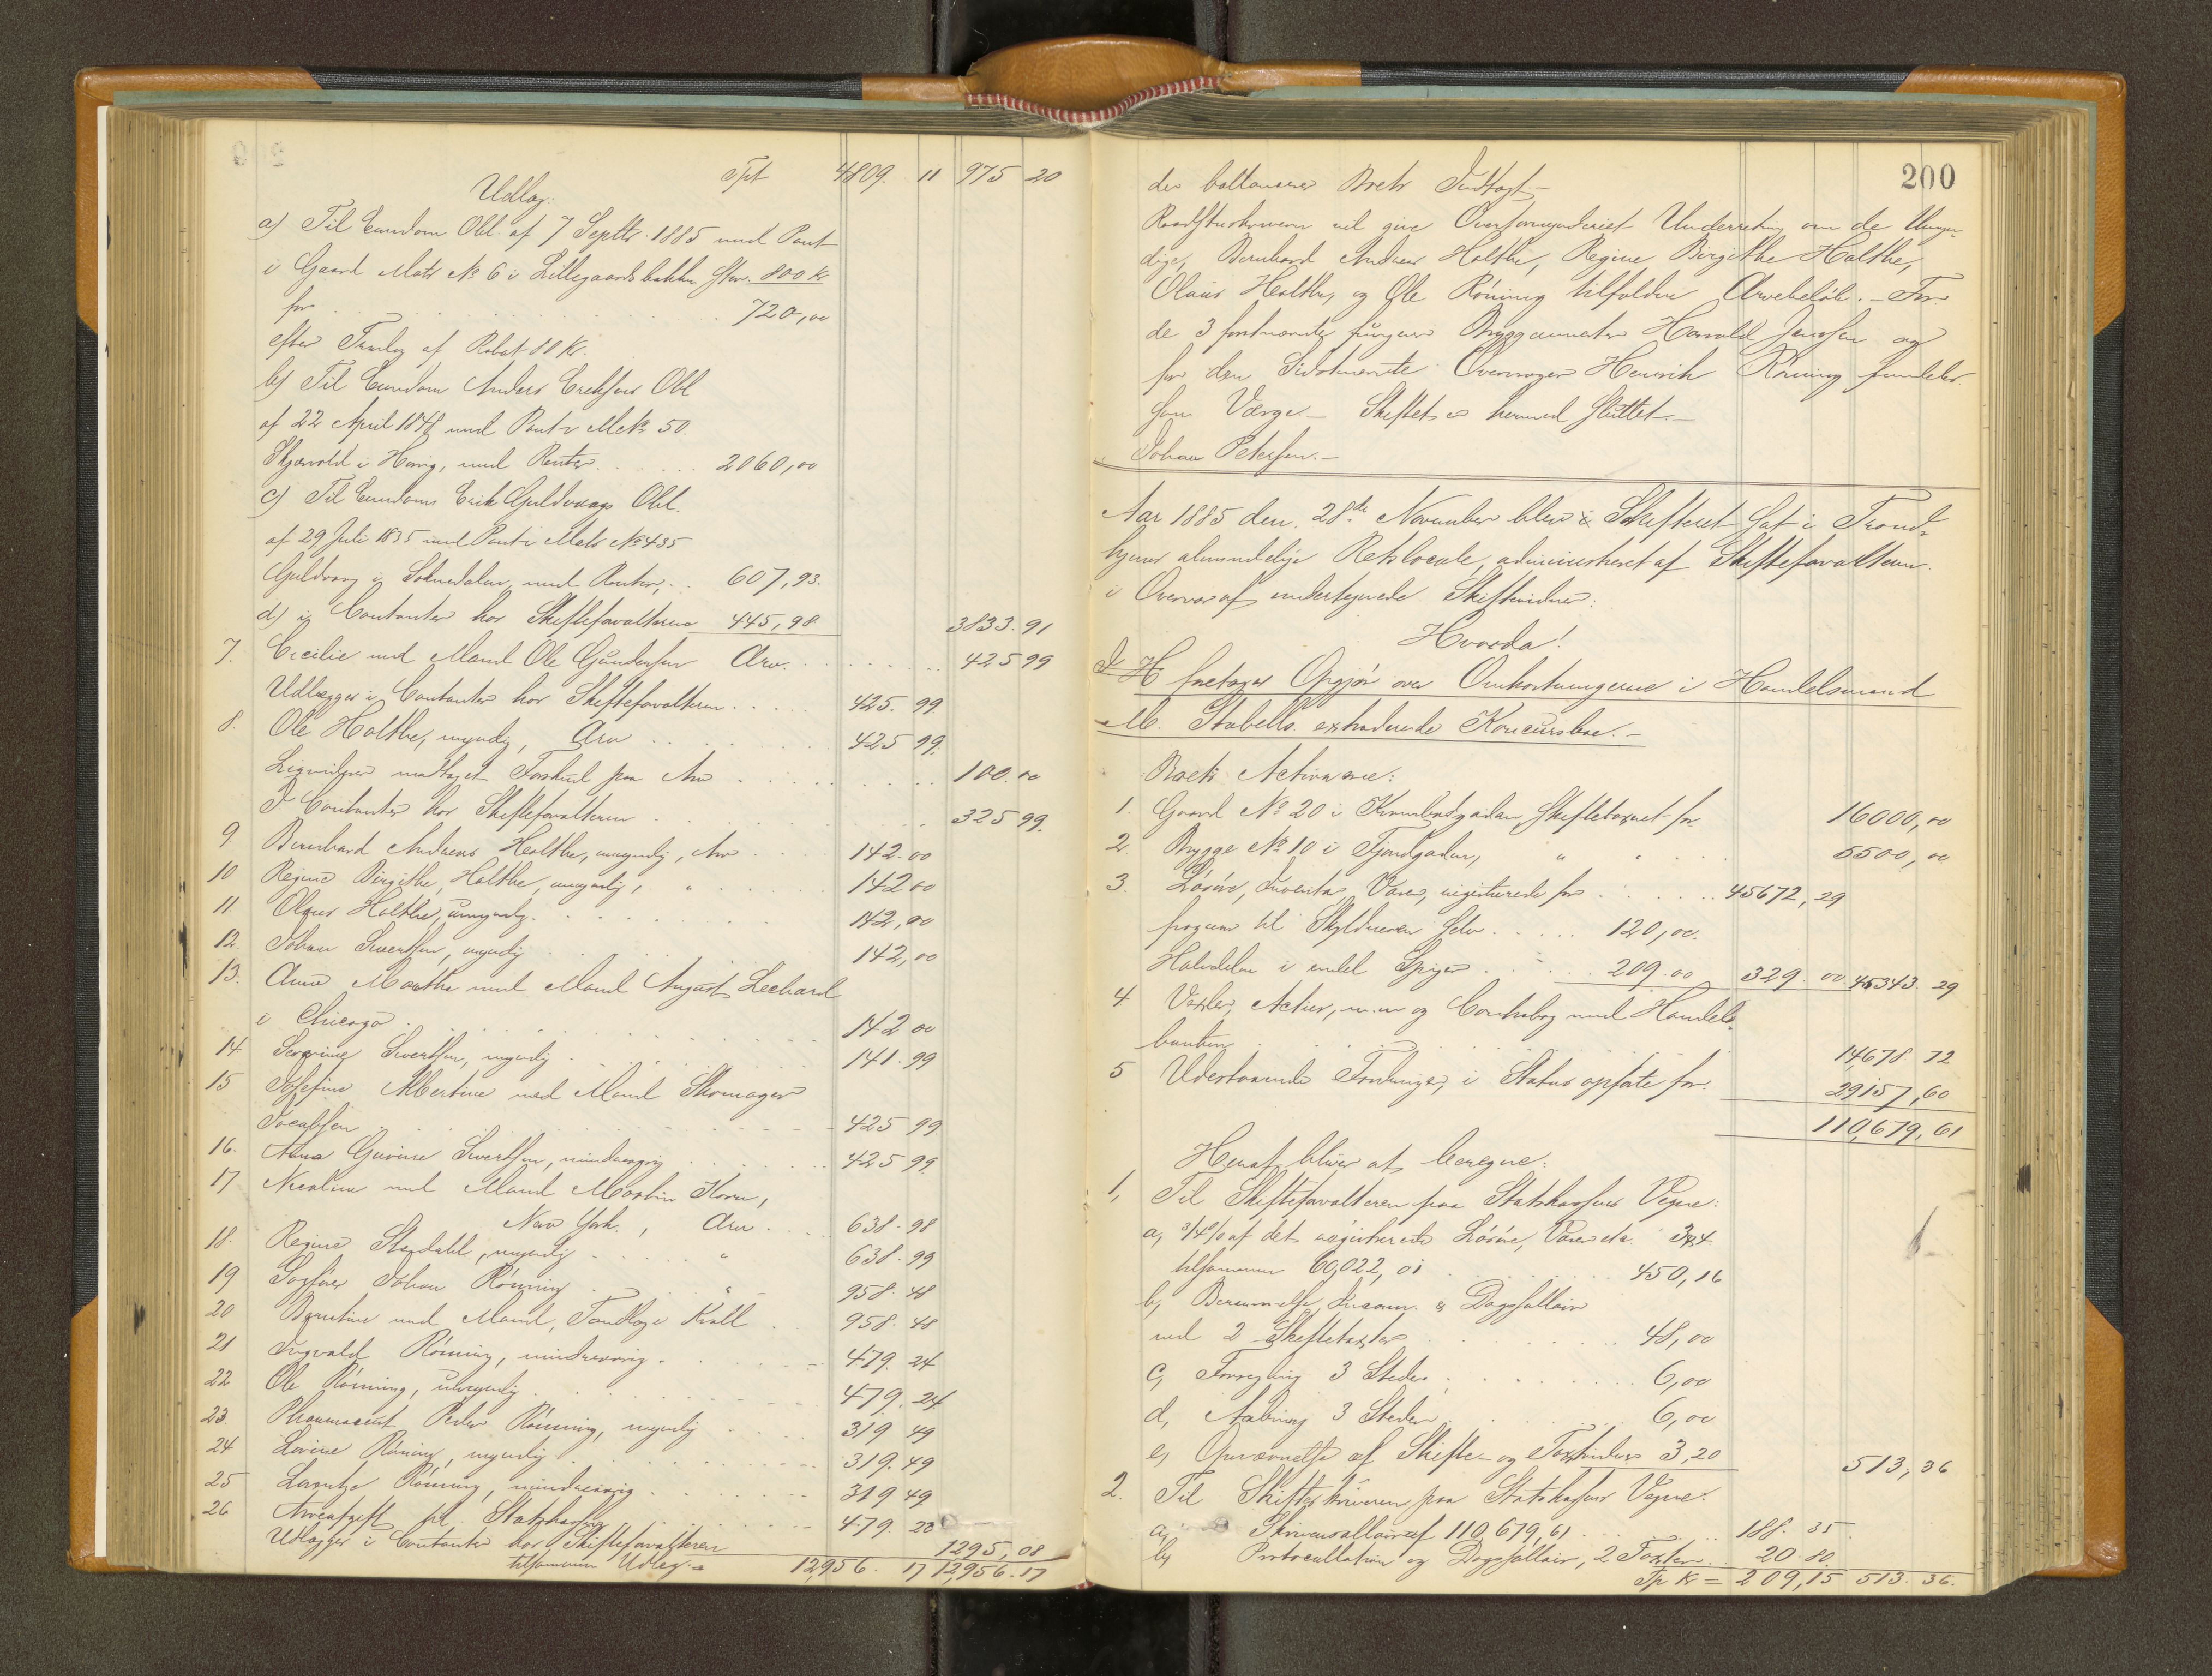 Tpt 4809. 11 975 20
Udlæg:
a) Til Eiendom Obl. af 7 Septbr. 1885 med Pant
i Gaard Matr № 6 i Lillegaardsbakken stor. 800 Kr
for 720,00
efter Fradrag af Rabat 80 Kr.
b) Til Eiendom Anders Erichsens Obl
af 22 April 1848 med Pant i Matr 50.
Skjærvold i Horrig, med Renter 2060,00
c) Til Eiendoms Erik Guldvaags Obl.
af 29 Juli 1835 med Pant i Matr № 435
Guldvaag i Soknedalen, med Renter, 607,93.
d) i Contanter hos Skifteforvalteren 445,98 3833. 91
7. Cecilie med Mand Ole Gundersen Arv. 425 99
Udlægges i Contanter hos Skifteforvalteren 425. 99
8. Ole Holthe, myndig, Arv 425 99.
Liqvideres modtaget Forskud paa Arv 100. 00
I Contanter hos Skifteforvalteren 325 99.
9 Bernhard Andreas Holthe, umyndig, Arv 142. 00
10 Regine Birgithe Holthe, umyndig, " 142 00
11. Olaus Holthe, umyndig. 142,00
12. Johan Sivertsen, myndig 142,00
13. Anne Marthe med Mand August Lechard
i Chicago 142 00
14 Severine Sivertsen, myndig 141. 99
15 Josefine Albertine med Mand Skomager
Jacobsen 425 99
16. Anna Gurine Sivertsen, mindreaarig 425 99
17 Nicoline med Mand Martin Korn,
New York., Arv 638. 98
18. Regine Stendahl, myndig " 638. 99
19 Sagfører Johan Rönning " 958. 48
20 Berntine med Mand, Tandlæge Krall 958. 48
21 Ingvald Rönning, mindreaarig. 479. 24
22 Ole Rönning, umyndig 479. 24
23. Pharmaceut Peder Rönning, myndig 319 49
24 Lovise Rönning, myndig 319. 49
25 Lorentze Rönning, mindreaarig 319 49
26 Arveafgift til Statskassen 479. 20
Udlægges i Contanter hos Skifteforvalteren 1295,08
tilsammen Udlæg = 12,956. 17 12,956. 17
200
der balancerer Boets Indtægt.—
Raadstueskriveren vil give Overformynderiet Underretning om de Umyn-
dige, Bernhard Andreas Holthe, Regine Birgithe Holthe,
Olaus Holthe, og Ole Rönning tilfaldne Arvebeløb. — For
de 3 førstnævnte fungerer Bryggemester Harald Jenssen og
for den Sidstnævnte Ovenmager Henrik Rönning fremdeles
som Værge — Skiftet er hermed sluttet.—
Johan Petersen.—
Aar 1885 den 28de November blev Skifteret sat i Trond-
hjems almindelige Retslocale, administreret af Skifteforvalteren.
i Overvær af undertegnede Skiftevidner:
Hvorda!
I H foretoges Opgjör over Omkostningerne i Handelsmand
M. Stabells extraderede Koncursboe.—
Boets Activa ere:
1. Gaard № 20 i Krambodgaden, Skiftetaxeret for 16000,00
2. Brygge № 10 i Fjordgaden, " " 5500,00
3. Lösöre, Inventar, Varer, registrerede for 45672,29
fragaar til Skyldneren selv 120,00.
Halvdelen i endel Spiger 209.00 329. 00. 45343. 29
4 Vexler, Actier, m.m og Contrabog med Handels-
banken 14,678. 72
5 Udestaaende Fordringer, i Status opførte for. 29,157,60
110,679,61
Heraf bliver at beregne:
1, Til Skifteforvalteren paa Statskassens Vegne:
a, 3/4 % af det registrerede Lösöre, Varer etc 3&4
tilsammen 60,022,01 450,16
b, Berammelse, Incam. & Dagssallair
ved 2 Skiftetaxter 48,00
c, Forsegling 3 Steder 6,00
d, Aabning 3 Steder 6,00
e, Opnævnelse af Skifte- og Taxtvidner 3,20 513,36
2. Til Skifteskriveren paa Statskassens Vegne:
a, Skriversallair af 110,679,61 188. 35.
b, Protocollation og Dagssallair, 2 Taxter 20. 80.
Tp Kr = 209,15 513. 36.